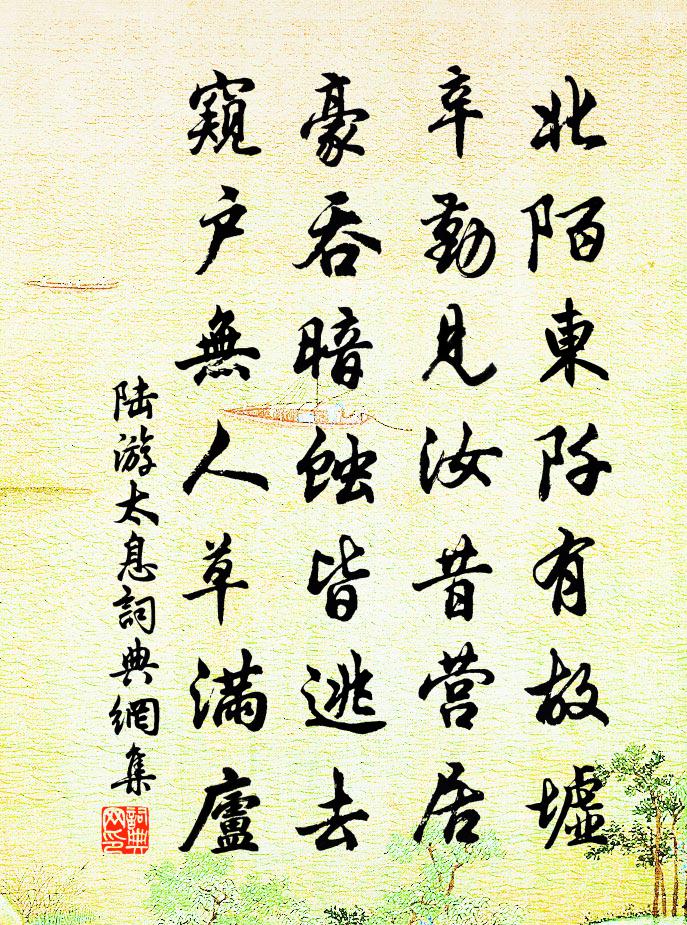 北陌東阡有故墟
辛勤見汝昔营居
豪吞暗蝕皆逃去
窺户無人草滿廬
陆游太息詞典網集
詞典网印